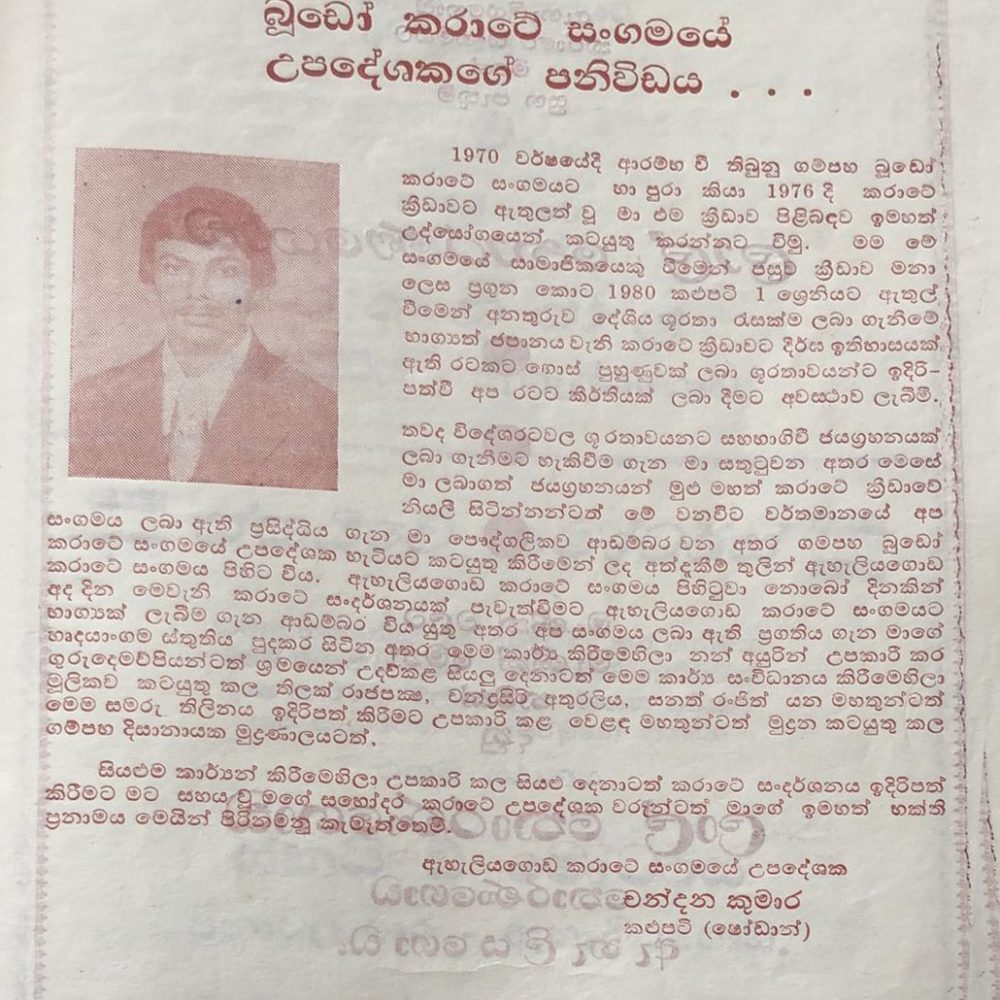 බූඩෝ කරාටේ සංගමයේ
උපදේශකගේ පනිවිඩය . . .
1970 වර්ෂයේදී ආරම්භ වී තිබුනු ගම්පහ බූඩෝ
කරාටේ සංගමයට හා පුරා කියා 1976 දී කරාටේ
ක්‍රීඩාවට ඇතුලත් වූ මා එම ක්‍රීඩාව පිළිබඳව ඉමහත්
උද්යෝගයෙන් කටයුතු කරන්නට විමු. මම මේ
සංගමයේ සාමාජිකයෙකු වීමෙන් පසුව ක්‍රීඩාව මනා
ලෙස ප්‍රගුන කොට 1980 කළුපටි 1 ශ්‍රේනියට ඇතුල්
වීමෙන් අනතුරුව දේශිය ශූරතා රැසක්ම ලබා ගැනීමේ
භාග්‍යත් ජපානය වැනි කරාටේ ක්‍රීඩාවට දීර්ඝ ඉතිහාසයක්
ඇති රටකට ගොස් පුහුණුවක් ලබා ශූරතාවයන්ට ඉදිරි-
පත්වී අප රටට කීර්තියක් ලබා දීමට අවස්ථාව ලැබීමී.
තවද විදේශරටවල ශූරතාවයනට සහභාගිවී ජයග්‍රහනයක්
ලබා ගැනීමට හැකිවීම ගැන මා සතුටුවන අතර මෙසේ
මා ලබාගත් ජයග්‍රහනයන් මුළු මහත් කරාටේ ක්‍රීඩාවේ
නියලී සිටින්නන්ටත් මේ වනවිට වර්තමානයේ අප
සංගමය ලබා ඇති ප්‍රසිද්ධිය ගැන මා පෞද්ගලිකව ආඩම්බර වන අතර ගම්පහ බූඩෝ
කරාටේ සංගමයේ උපදේශක හැටියට කටයුතු කිරීමෙන් ලද අත්දැකීම් තුලින් ඇහැලියගොඩ
කරාටේ සංගමය පිහිට විය. ඇහැලියගොඩ කරාටේ සංගමය පිහිටුවා නොබෝ දිනකින්
අද දින මෙවැනි කරාටේ සංදර්ශනයක් පැවැත්වීමට ඇහැලියගොඩ කරාටේ සංගමයට
භාග්‍යක් ලැබීම ගැන ආඩම්බර විය යුතු අතර අප සංගමය ලබා ඇති ප්‍රගතිය ගැන මාගේ
හෘදයාංගම ස්තූතිය පුදකර සිටින අතර මෙම කාර්‍ය කිරීමෙහිලා නන් අයුරින් උපකාරී කර
ගුරුදෙමව්පියන්ටත් ශ්‍රමයෙන් උදව්කළ සියලු දෙනාටත් මෙම කාර්‍ය සංවිධානය කිරීමෙහිලා
මූලිකව කටයුතු කල තිලක් රාජපක්ෂ, චන්ද්‍රසිරි අතුරලිය, සනත් රංජිත් යන මහතුන්ටත්
මෙම සමරු තිලිනය ඉදිරිපත් කිරීමට උපකාරී කළ වෙළඳ මහතුන්ටත් මුද්‍රන කටයුතු කල
ගම්පහ දිසානායක මුද්‍රණාලයටත්.
සියළුම කාර්‍යන් කිරීමෙහිලා උපකාරි කල සියළු දෙනාටත් කරාටේ සංදර්ශනය ඉදිරිපත්
කිරීමට මට සහය වූ මගේ සහෝදර කරාටේ උපදේශක වරුන්ටත් මාගේ ඉමහත් භක්ති
ප්‍රනාමය මෙයින් පිරිනමනු කැමැත්තෙමි.
ඇහැලියගොඩ කරාටේ සංගමයේ උපදේශක
චන්දන කුමාර
කළුපටි (ෂෝඩාන්)